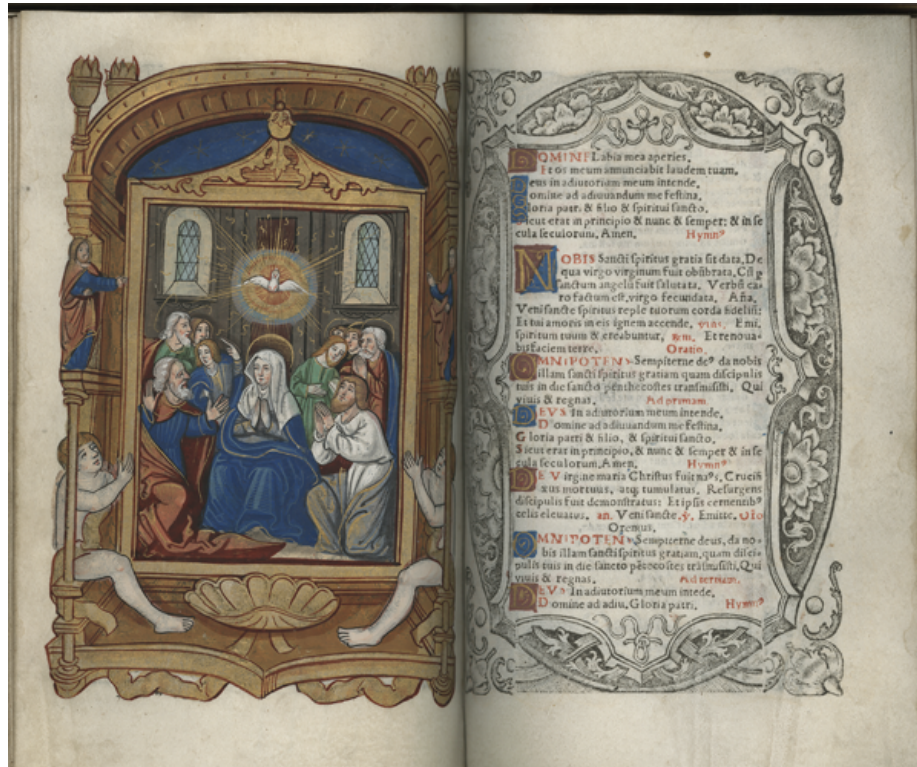 DOMINE Labia mea aperies.
Et os meum annunciabit laudem tuam.
Deus in adiutorium meum intende.
Domine ad adiuuandum me festina.
Gloria patri & filio & spiritui sancto.
Sicut erat in principio & nunc & semper: & in se
cula seculorum. Amen. Hymnꝰ
NOBIS Sancti spiritus gratia sit data. De
qua virgo virginum fuit obũbrata. Cũ p
sanctum angelũ fuit salutata. Verbũ ca
ro factum est, virgo fecundata. Aña.
Veni sancte spiritus reple tuorum corda fideliũ:
Et tui amoris in eis ignem accende. Emi.
spiritum tuum & creabuntur. Et renoua
bis faciem terre. Oratio.
OMNIPOTENS Sempiterne deꝰ da nobis
illam sancti spiritus gratiam quam discipulis
tuis in die sancto penthecostes transmisisti. Qui
viuis & regnas. Ad primam.
DEVS In adiutorium meum intende.
Domine ad adiuuandum me festina.
Gloria patri & filio, & spiritui sancto.
Sicut erat in principio, & nunc & semper & in se
cula seculorum. Amen. Hymnꝰ
DE Virgine maria Christus fuit naꝰs. Crucifi
xus mortuus, atq; tumulatus. Resurgens
discipulis fuit demonstratus: Et ipsis cernentibꝰ
celis eleuatus. an. Veni sancte. ꝟ. Emitte. Oĩo
Oremus.
OMNIPOTENS Sempiterne deus, da no-
bis illam sancti spiritus gratiam, quam disci-
pulis tuis in die sancto pẽtecostes trãsmisisti. Qui
viuis & regnas. Ad tertiam.
DEVS In adiutorium meum intẽde.
Domine ad adiu. Gloria patri. Hymnꝰ